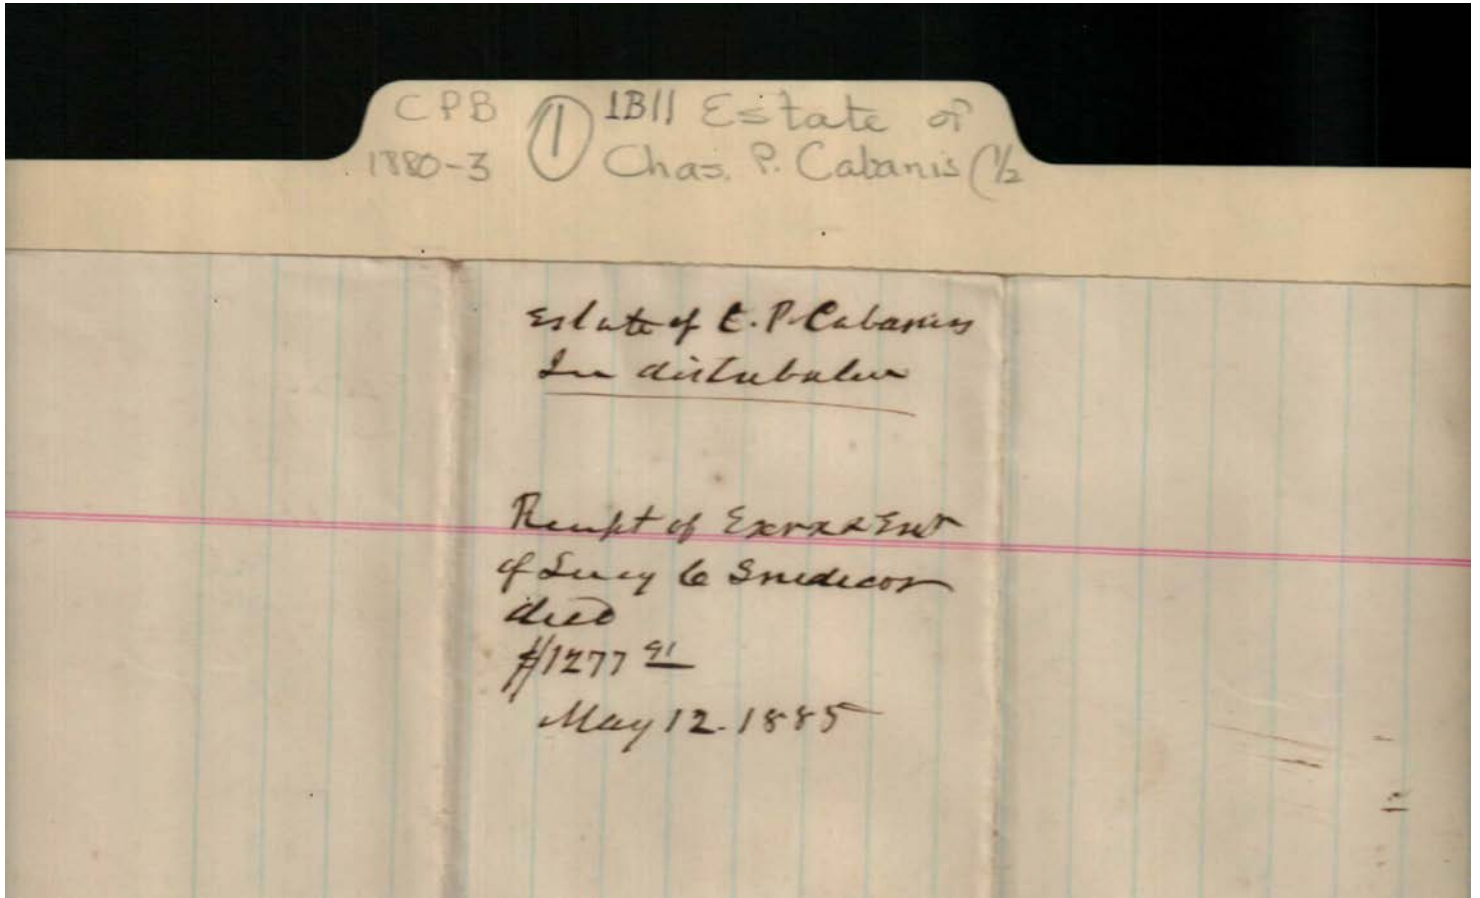 CPB ① 1B11 Estate of
1880-3 Chas. P. Cabanis (1/2
Estate of C. P. Cabaniss
In distribution
Receipt of Exrx & Exr
of Lucy C Snedecor
decd
$1277 91
May 12. 1885